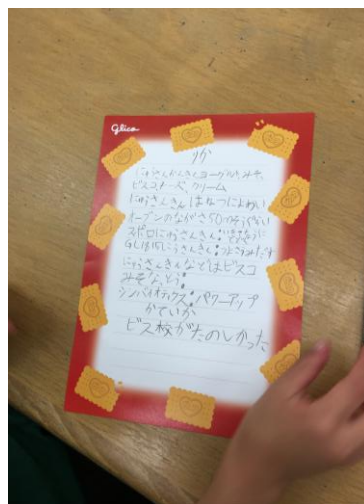 glico
りか
にゅうさんきんヨーグルト、みそ、
ビスコ チーズ、クリーム
にゅうさんきんはねつによわい
オーブンのながさ
スポロにゅうさんきん:
にゅうさんきん:
にゅうさんきん ではビスコ
みそ なっとう
シンバイオティクス:パワーアップ
かていか
ビス校がたのしかった